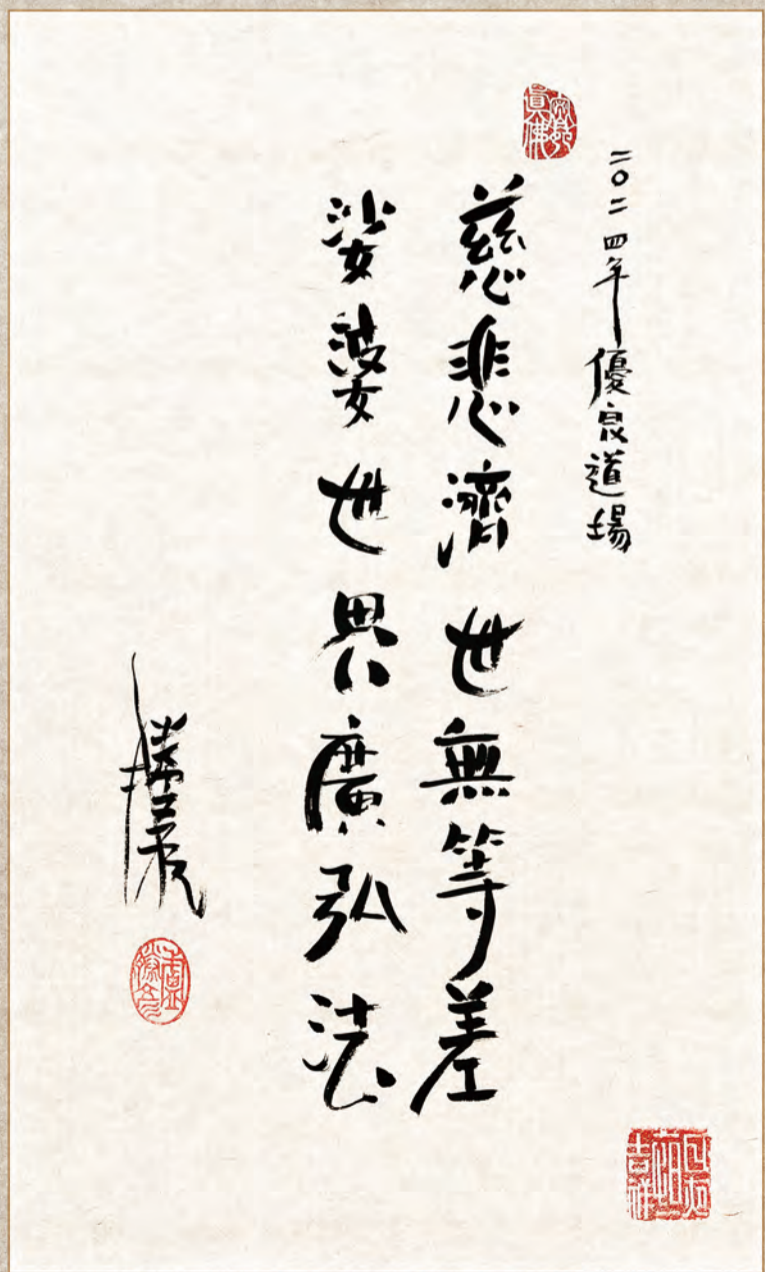 二〇二四年優良道場
慈悲濟世無等差
娑婆世界廣弘法